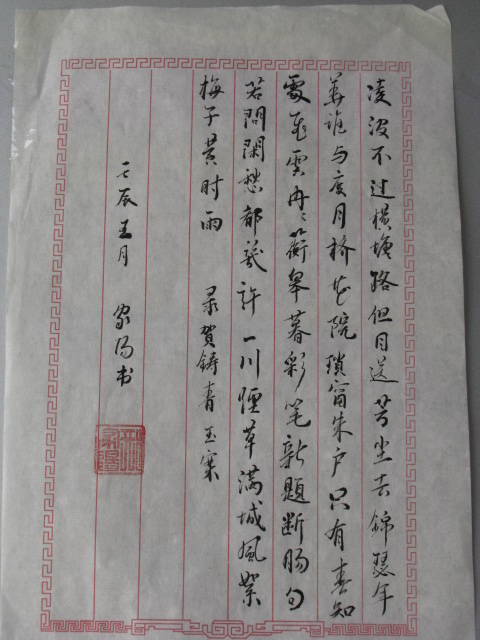 凌波不过横塘路但目送芳尘去錦瑟年
华谁与度月桥花院琐窗朱户只有春知
處飞雲冉冉蘅皋暮彩笔新题断肠句
若問閑愁都幾許一川煙草满城風絮
梅子黄时雨 录賀铸青玉案
壬辰五月 书